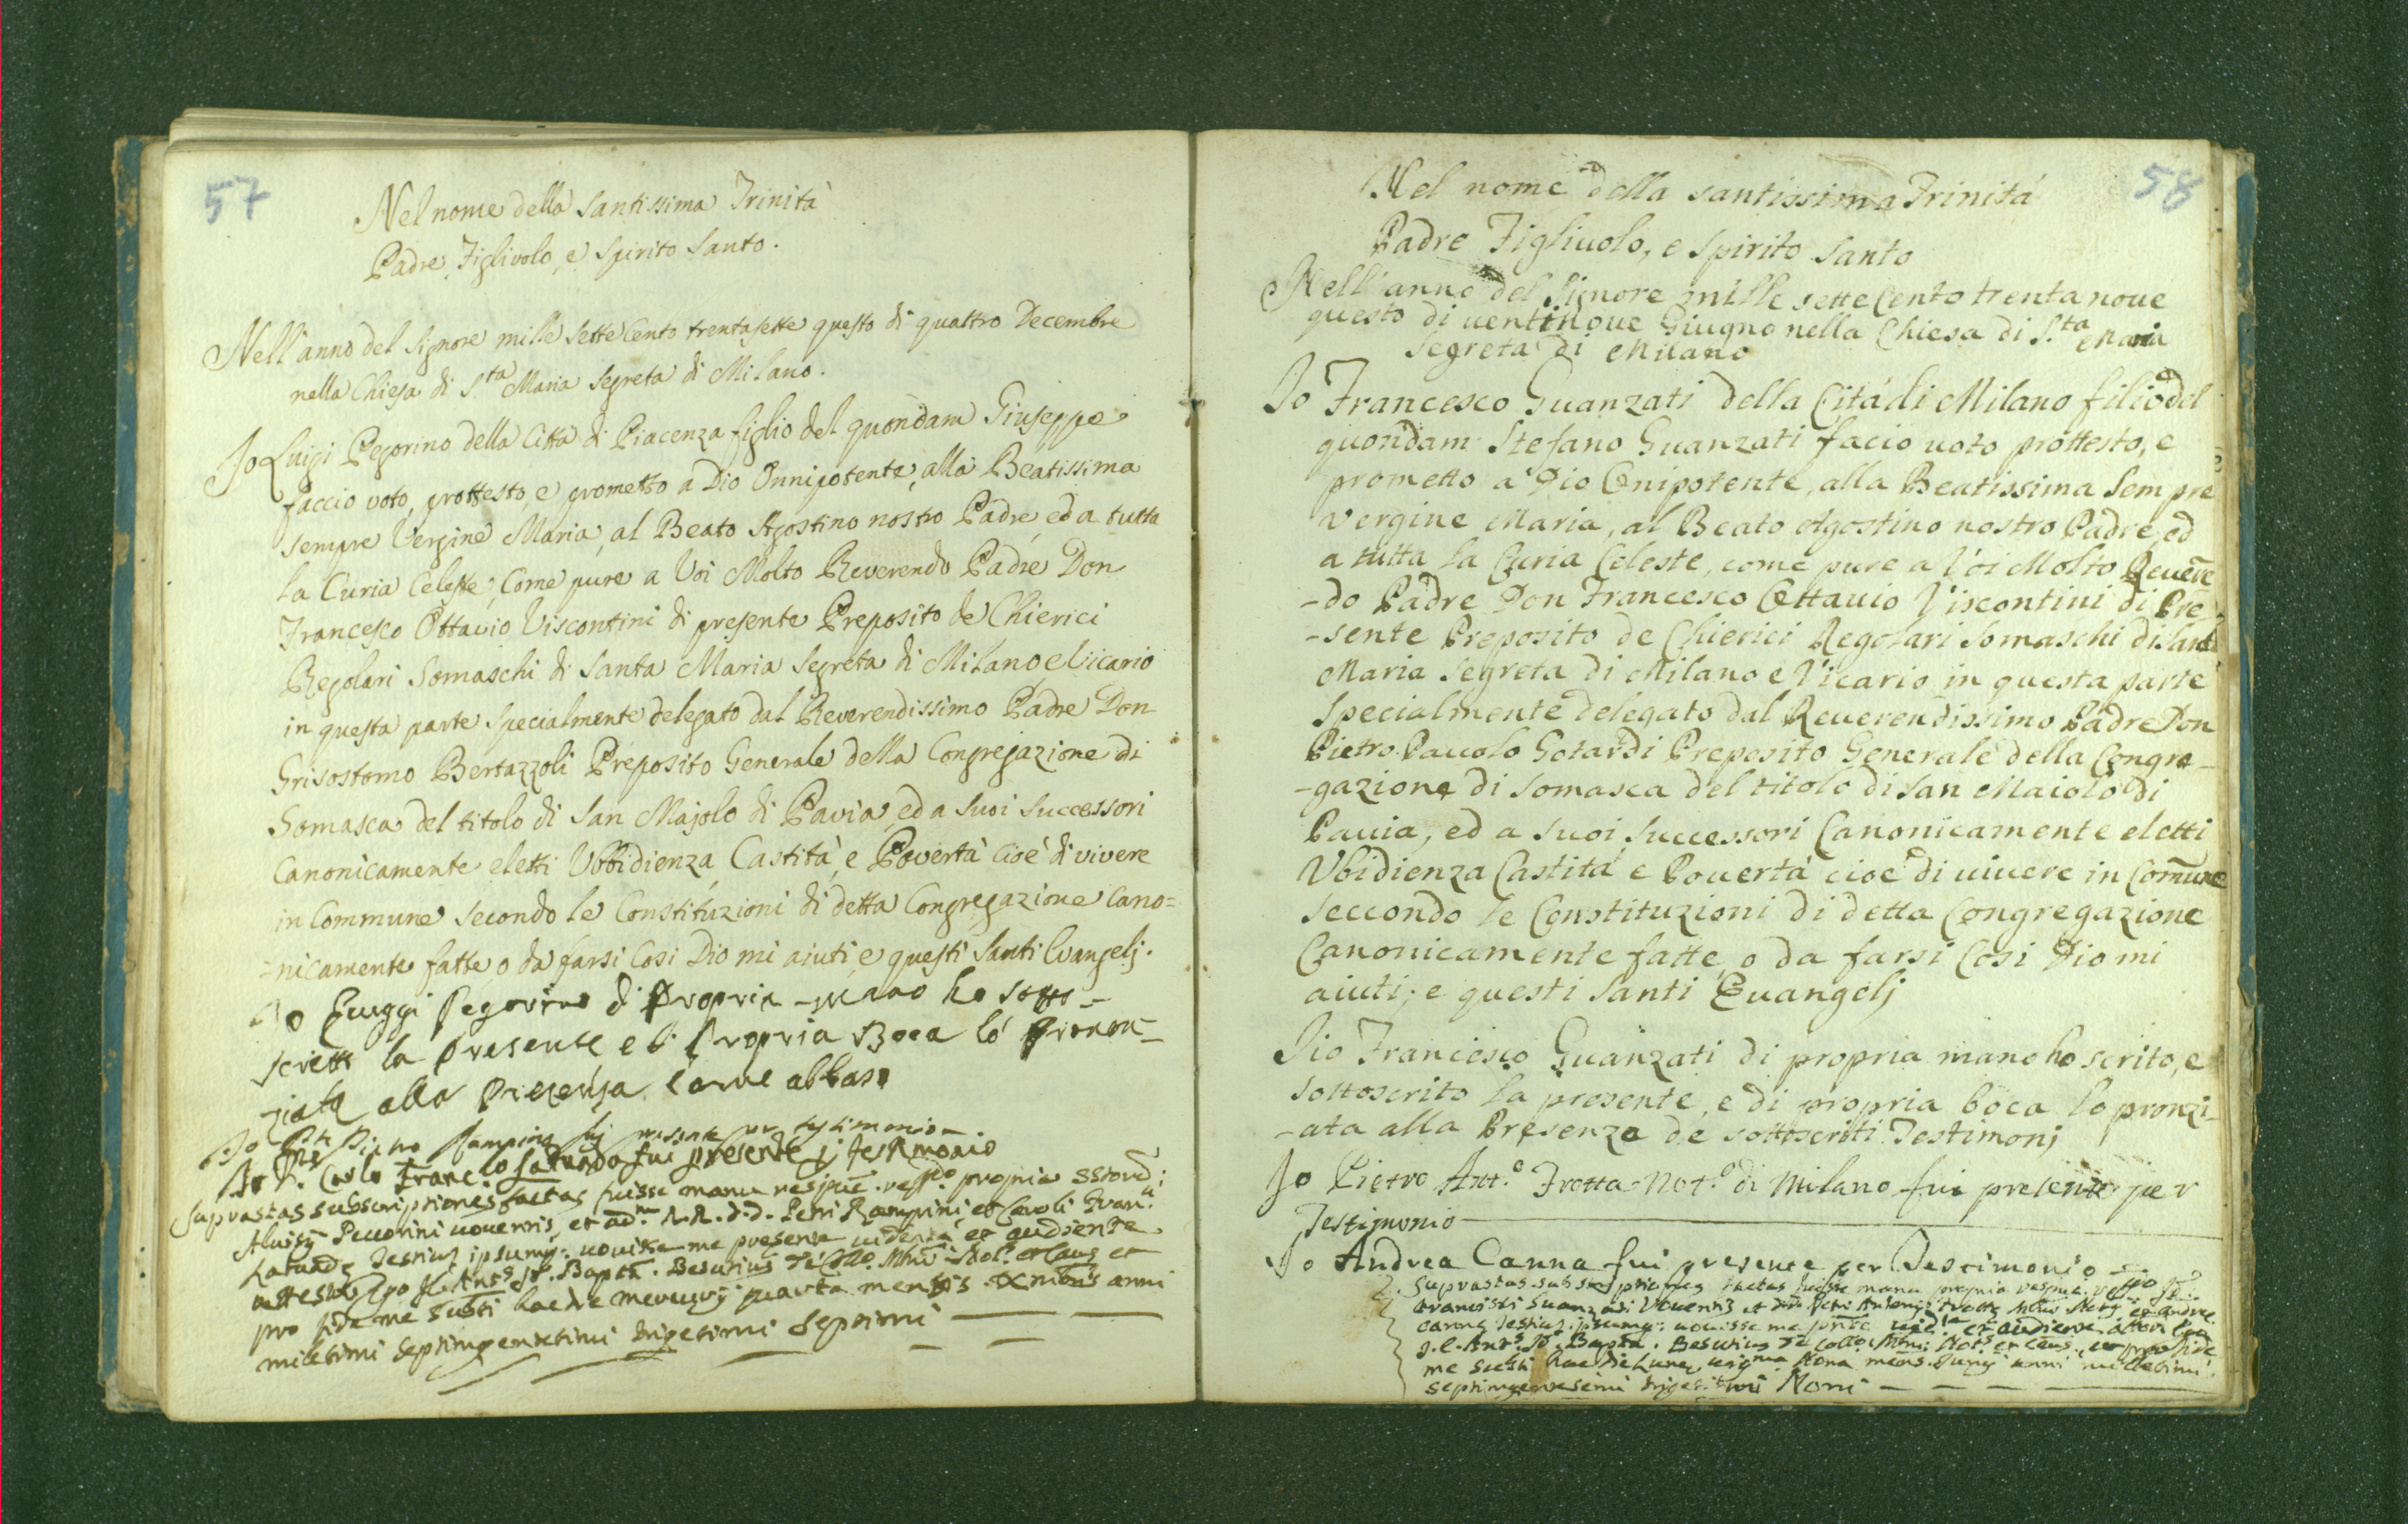 57
Nel nome della Santissima Trinità
Padre, Figlivolo, e Spirito Santo.
Nell'anno del Signore mille sette Cento trentasette questo dì quattro Decembre
nella Chiesa di S.ta Maria Segreta di Milano.
Jo Luigi Pegorino della Città di Piacenza figlio del quondam Giuseppe
faccio voto, prottesto, e prometto a Dio Onnipotente, alla Beatissima
sempre Vergine Maria, al Beato Agostino nostro Padre, ed a tutta
la Curia Celeste, Come pure a Voi Molto Reverendo Padre Don
Francesco Ottavio Viscontini di presente Preposito de Chierici
Regolari Somaschi di Santa Maria Segreta di Milano, e Vicario
in questa parte Specialmente delegato dal Reverendissimo Padre Don
Grisostomo Bertazzoli Preposito Generale della Congregazione di
Somasca del titolo di San Majolo di Pavia, ed a suoi Successori
Canonicamente eletti Ubbidienza, Castità, e Povertà cioè di vivere
in Commune secondo le Constituzioni di detta Congregazione Cano=
=nicamente fatte, o da farsi Così Dio mi aiuti, e questi Santi Evangelj.
Jo Luiggi Pegorino di Propria mano ho sotto-
scritto la presente e di Propria Boca lo pronon-
ziata alla Presenza come abbaso
Jo Pietro Rampini fuj testimonio
Jo Carlo Franc.co fui presente p testimonio
Suprastas subscriptiones factas fuisse manu respue. propria
Aluisij Peccorini uouentis, et ad.m R.R. d.d. Petri Rampini et Caroli Fran.ci
testium ipsumq: nouisse me presente uidente et audiente
attestor Ego J. C. Ant.s Jo. Bapta. Besutius de Coll.o Mni Not.s et Caus et
pro fide me subti hac die mercurij quarta mensis Xmbris anni
millesimi septimgentesimi trigesimi septimi
58
Nel nome della santissima Trinitá
Padre Figliuolo, e Spirito Santo
Nell'anno del Signore mille sette Cento trentanoue
questo di uentinoue Giugno nella Chiesa di S.ta Maria
Segreta di Milano
Jo Francesco Guanzati della Citá di Milano filio del
quondam Stefano Guanzati facio uoto prottesto, e
prometto a Dio Onipotente, alla Beatissima Sempre
Vergine Maria, al Beato Agostino nostro Padre, ed
a tutta la Curia Celeste, come pure a Voi Molto Reuerē
-do Padre Don Francesco Ottauio Viscontini di Pre
-sente Preposito de Chierici Regolari Somaschi di Santa
Maria Segreta di Milano e Vicario in questa parte
Specialmente delegato dal Reuerendissimo Padre Don
Pietro Pauolo Gotardi Preposito Generale della Congre
-gazione di Somasca del titolo di San Maiolo di
Pauia, ed a suoi Successori Canonicamente eletti
Vbidienza Castitá e Pouertá cioe di uiuere in Comūne
seccondo le Constituzioni di detta Congregazione
Canonicamente fatte, o da farsi Cosi Dio mi
aiuti, e questi Santi Euangelj
Jio Francesco Guanzati di propria mano ho scrito, e
sottoscrito la presente, e di propria boca lo pronzi-
-ata alla Presenza de sottoscriti Testimonj
Jo Pietro Ant.o Trotta Not.o di Milano fui presente per
Testimonio
Jo Andrea Canna fui presente per Testimonio
Suprastas subscriptiones factas fuisse manu propria respue.
Francisci Guanzati Vouentis et Petri Antonij Trotta Not.rij et Andree
Canne testium ipsumq: nouisse me pnte uid.te et audiente attestor Ego
J. C. Ant.s Jo. Bapta. Besutius de Coll.o Mni: Not.s et Caus. et pro fide
me subti hac die Lune uig.ma Nona mens. Junij anni millesimi
septimgentesimi trigesimi Noni